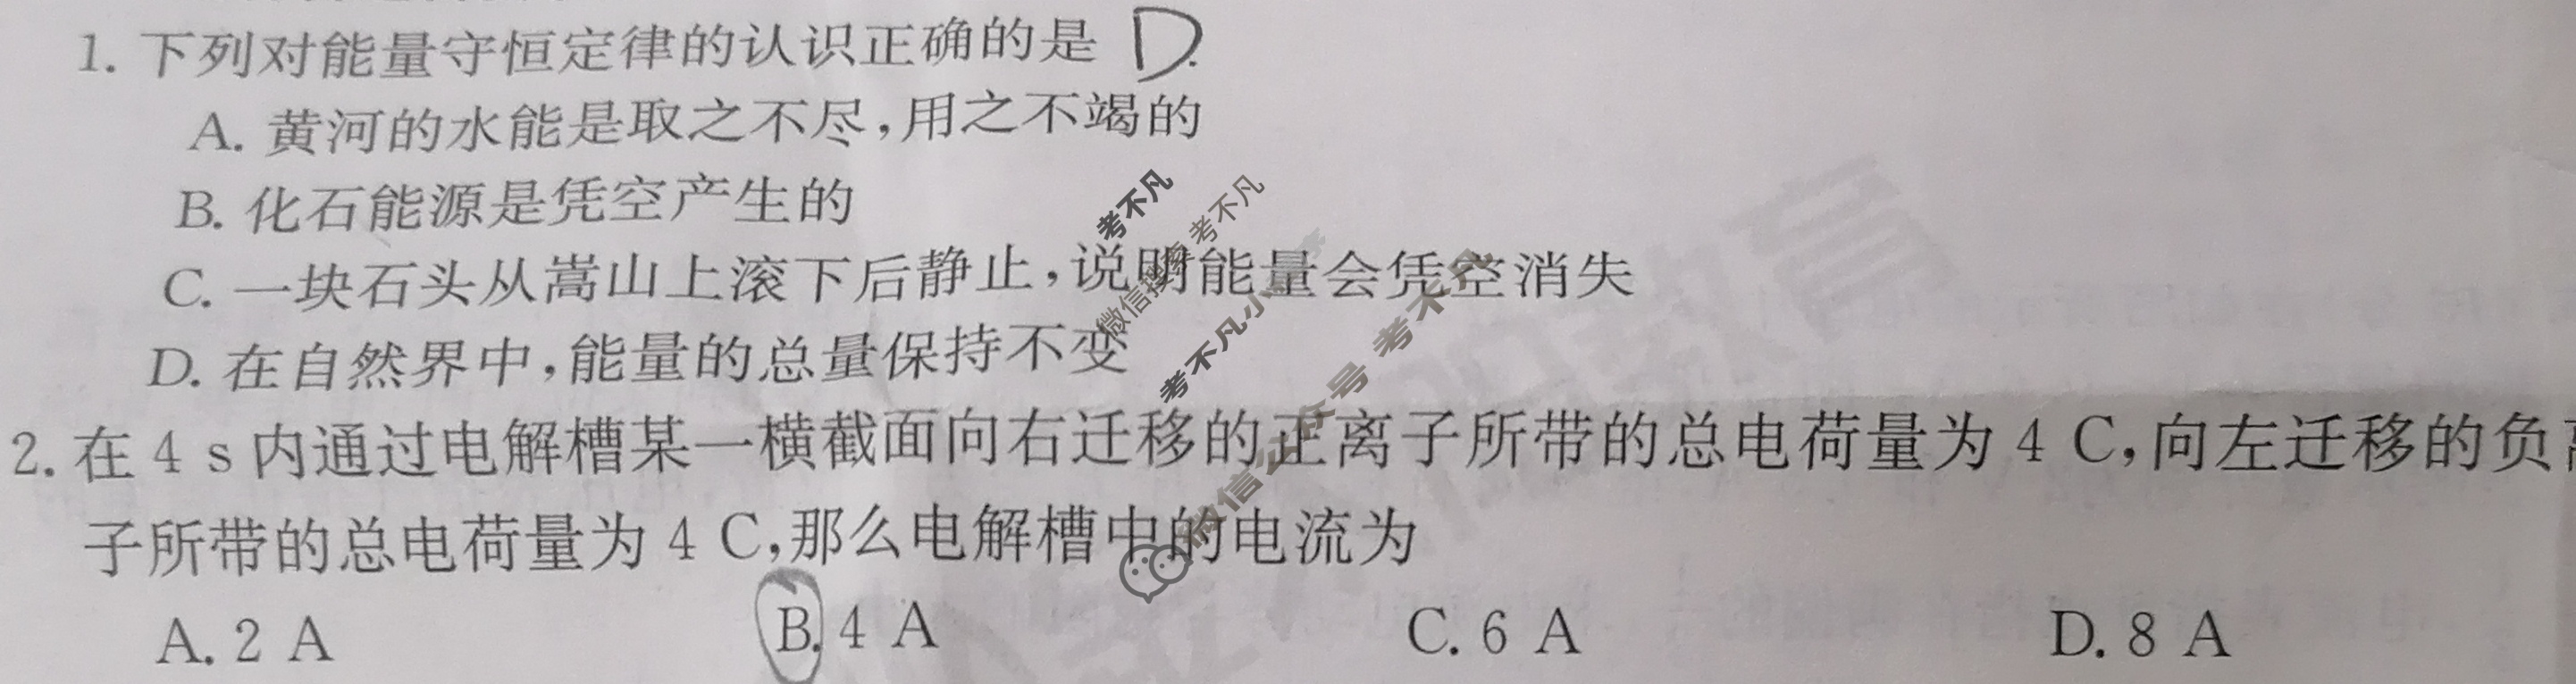 1. 下列对能量守恒定律的认识正确的是 D.
A. 黄河的水能是取之不尽,用之不竭的
B. 化石能源是凭空产生的
C. 一块石头从嵩山上滚下后静止,说明能量会凭空消失
D. 在自然界中,能量的总量保持不变
2. 在 4 s 内通过电解槽某一横截面向右迁移的正离子所带的总电荷量为 4 C,向左迁移的负
子所带的总电荷量为 4 C,那么电解槽中的电流为
A. 2 A B. 4 A C. 6 A D. 8 A
考不凡
考不凡
微信搜
考不凡小
微信公众号 考不凡
教育